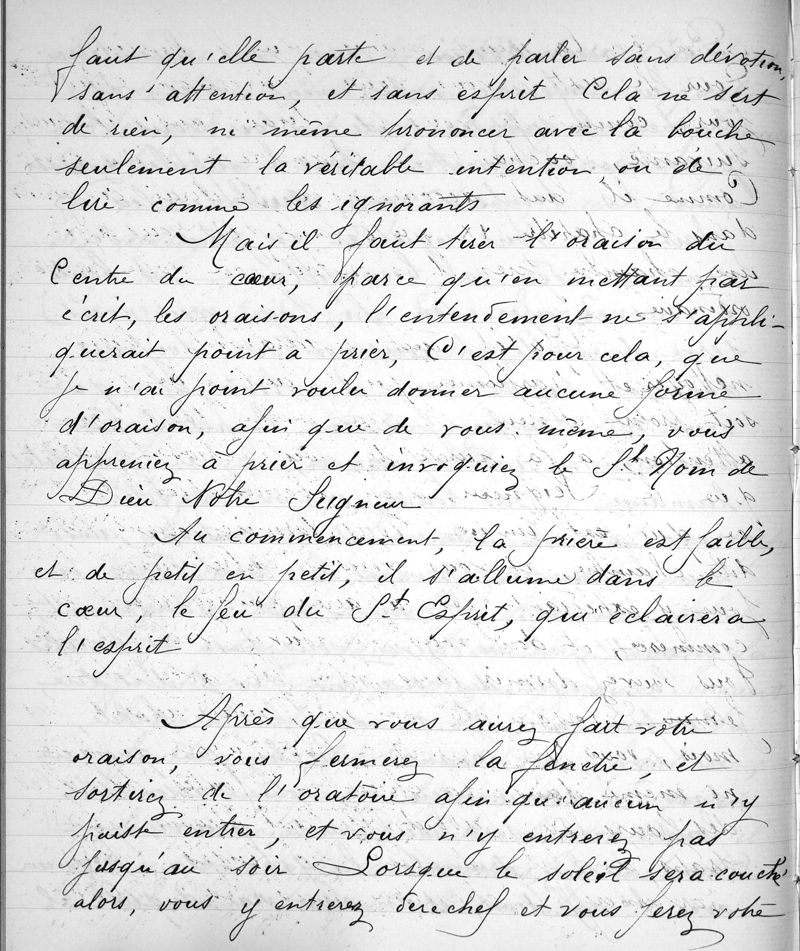 faut qu'elle parte et de parler sans dévotion,
sans attention, et sans esprit Cela ne sert
de rien, ni même prononcer avec la bouche
seulement la véritable intention, ou de
lire comme les ignorants
Mais il faut tirer l'oraison du
Centre du cœur, parce qu'en mettant par
écrit, les oraisons, l'entendement ne s'appli-
querait point à prier, C'est pour cela, que
je n'ai point voulu donner aucune forme
d'oraison, afin que de vous même, vous
appreniez à prier et invoquiez le St Nom de
Dieu Notre Seigneur
Au commencement, la prière est faible,
et de petit en petit, il s'allume dans le
cœur, le feu du St Esprit, qui éclairera
l'esprit
Après que vous aurez fait votre
oraison, vous fermerez la fenêtre, et
sortirez de l'oratoire afin qu'aucun n'y
puisse entrer, et vous n'y entrerez pas
jusqu'au soir Lorsque le soleil sera couché
alors, vous y entrerez derechef et vous ferez votre